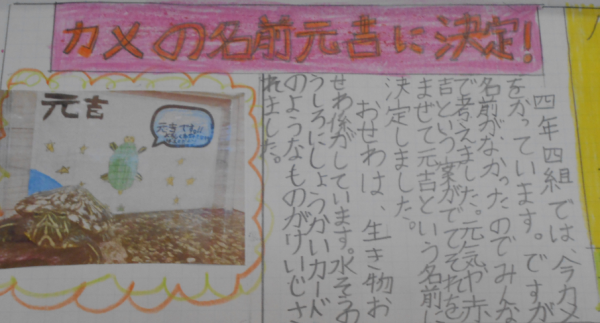 カメの名前元吉に決定!
四年四組では、今カメ
をかっています。ですが
名前がなかったのでみんな
で考えました。元気や赤
吉という案がでてそれを
ませて元吉という名前に
決定しました。
おせわは、生き物お
せわ係がしています。水そう
うしろにしょうかいカード
のようなものがけいじさ
れました。
元吉
元吉です!!